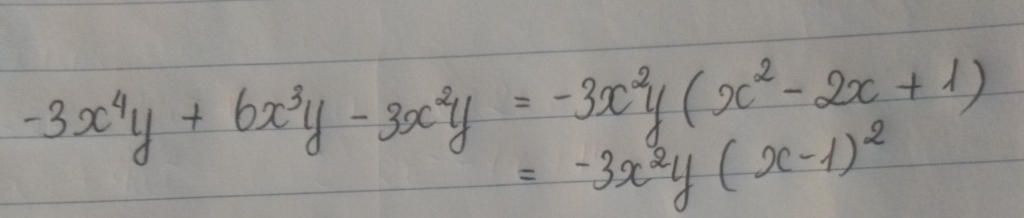 -3x⁴y + 6x³y - 3x²y = -3x²y (x² - 2x + 1)
= -3x²y (x-1)²